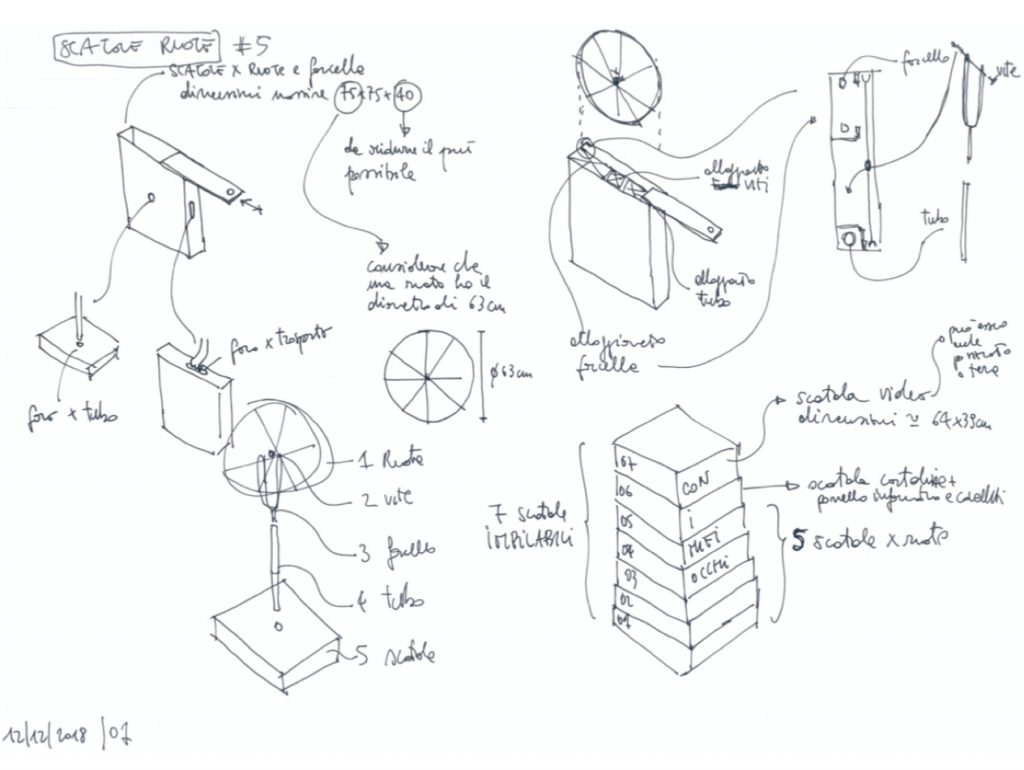 SCATOLE RUOTE #5
SCATOLE X RUOTE e forcelle
dimensioni massime 75x75x40
da ridurre il più
possibile
considerare che
una ruota ha il
diametro di 63 cm
Ø 63 cm
foro x tubo
foro x trasporto
1 Ruota
2 vite
3 forcella
4 tubo
5 scatola
12/12/2018 / 07
alloggiamento
forcella
viti
tubo
forcella
vite
tubo
scatola video
dimensioni ≃ 64x39cm
7 scatole
IMPILABILI
07
06
05
04
03
02
01
CON
I
MIEI
OCCHI
scatola cartoline +
5 scatole x ruote